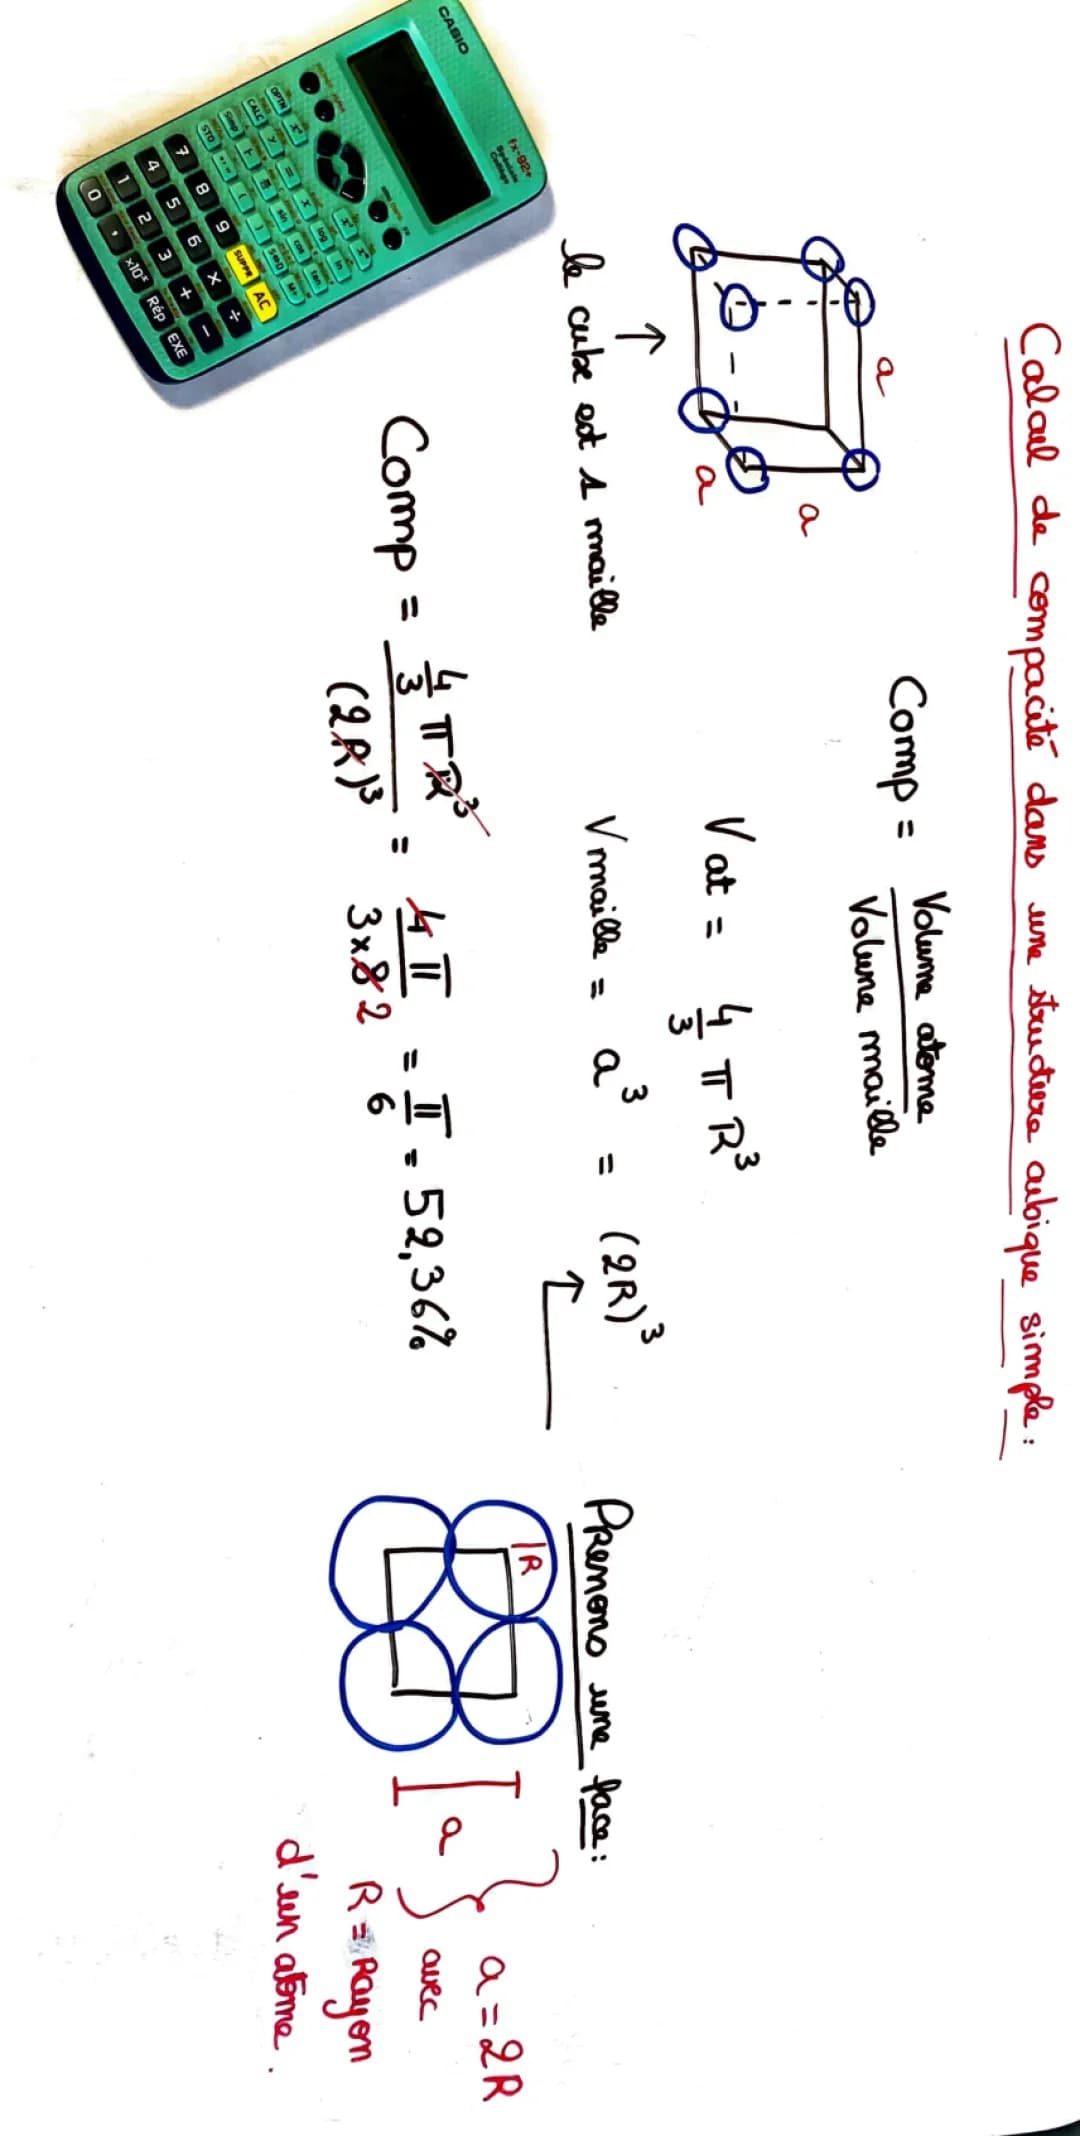 Calcul de compacité dans une structure cubique simple :
Comp = Volume atome / Volume maille
a
a
a
le cube est 1 maille
V at = 4/3 π R³
V maille = a³ = (2R)³
Comp = 4/3 π R³ / (2R)³ = 4π / 3×8 2 = π/6 = 52,36%
Prenons une face :
R
a
a = 2R
avec
R = Rayon
d'un atome.
CASIO
fx-92+
Spéciale
Collège
OPTN
CALC
Simp
STO
log
ln
sin
cos
tan
S⇔D
M+
7 8 9 SUPPR AC
4 5 6 × ÷
1 2 3 + −
0 , ×10ˣ Rép EXE